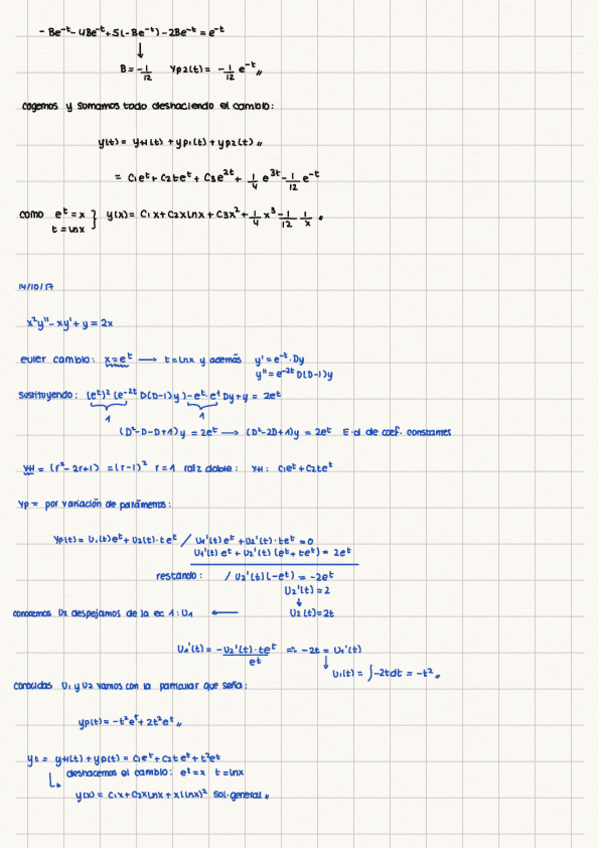 - Be⁻ᵗ - 4Be⁻ᵗ + 5(-Be⁻ᵗ) - 2Be⁻ᵗ = e⁻ᵗ
↓
B = -1/12   Yp2(t) = -1/12 e⁻ᵗ,,
cogemos y sumamos todo deshaciendo el cambio:
y(t) = yH(t) + yp1(t) + yp2(t),,
= C1eᵗ + C2teᵗ + C3e²ᵗ + 1/4 e³ᵗ - 1/12 e⁻ᵗ
como eᵗ = x } y(x) = C1x + C2xlnx + C3x² + 1/4 x³ - 1/12 1/x ,,
t = lnx
14/10/17
x²y'' - xy' + y = 2x
euler cambio: x = eᵗ → t = lnx y además y' = e⁻ᵗ·Dy
y'' = e⁻²ᵗ D(D-1)y
Sustituyendo: (eᵗ)² (e⁻²ᵗ D(D-1)y) - eᵗ·e⁻ᵗ Dy + y = 2eᵗ
1   1
(D²-D-D+1)y = 2eᵗ → (D²-2D+1)y = 2eᵗ E·d de coef. constantes
yH = (r²-2r+1) = (r-1)² r=1 raíz doble: yH: C1eᵗ + C2teᵗ
yp = por variación de parámetros:
yp(t) = U1(t)eᵗ + U2(t)·teᵗ / U1'(t)eᵗ + U2'(t)·teᵗ = 0
U1'(t)eᵗ + U2'(t)(eᵗ + teᵗ) = 2eᵗ
restando: / U2'(t)(-eᵗ) = -2eᵗ
U2'(t) = 2
↓
conocemos U2 despejamos de la ec 1: U1 ← U2(t) = 2t
U1'(t) = -U2'(t)·teᵗ/eᵗ => -2t = U1'(t)
↓
U1(t) = ∫-2tdt = -t²,,
conocidas U1 y U2 vamos con la particular que sería:
yp(t) = -t²eᵗ + 2t²eᵗ,,
yt = yH(t) + yp(t) = C1eᵗ + C2teᵗ + t²eᵗ
↳ deshacemos el cambio: eᵗ = x t = lnx
y(x) = C1x + C2xlnx + x(lnx)² sol·general,,